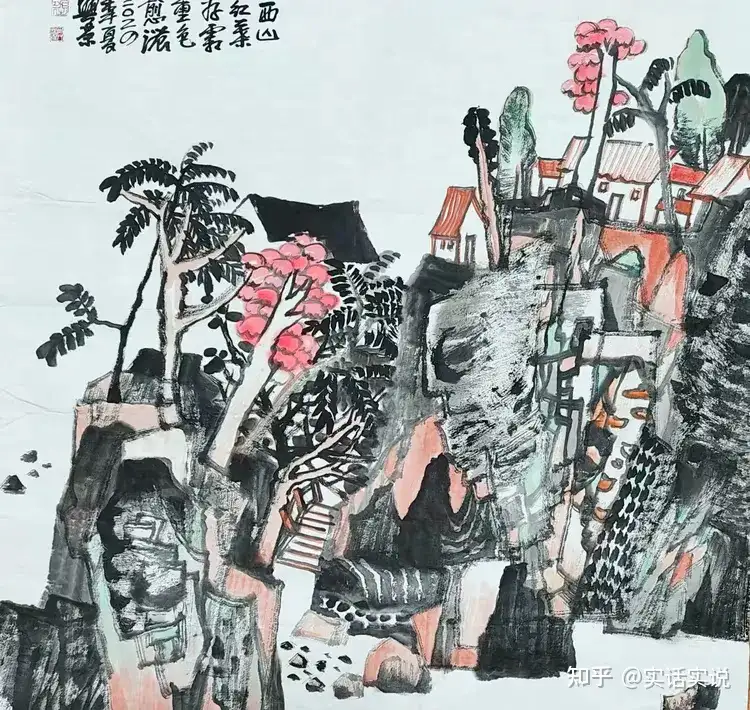 西山
红葉
好霜
重色
愈浓
二〇二四
年夏
知乎 @实话实说